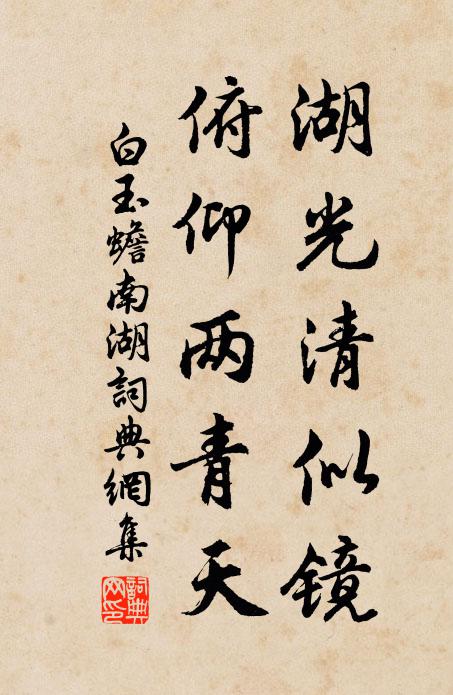 湖光清似镜
俯仰两青天
白玉蟾南湖詞典網集
詞典網印